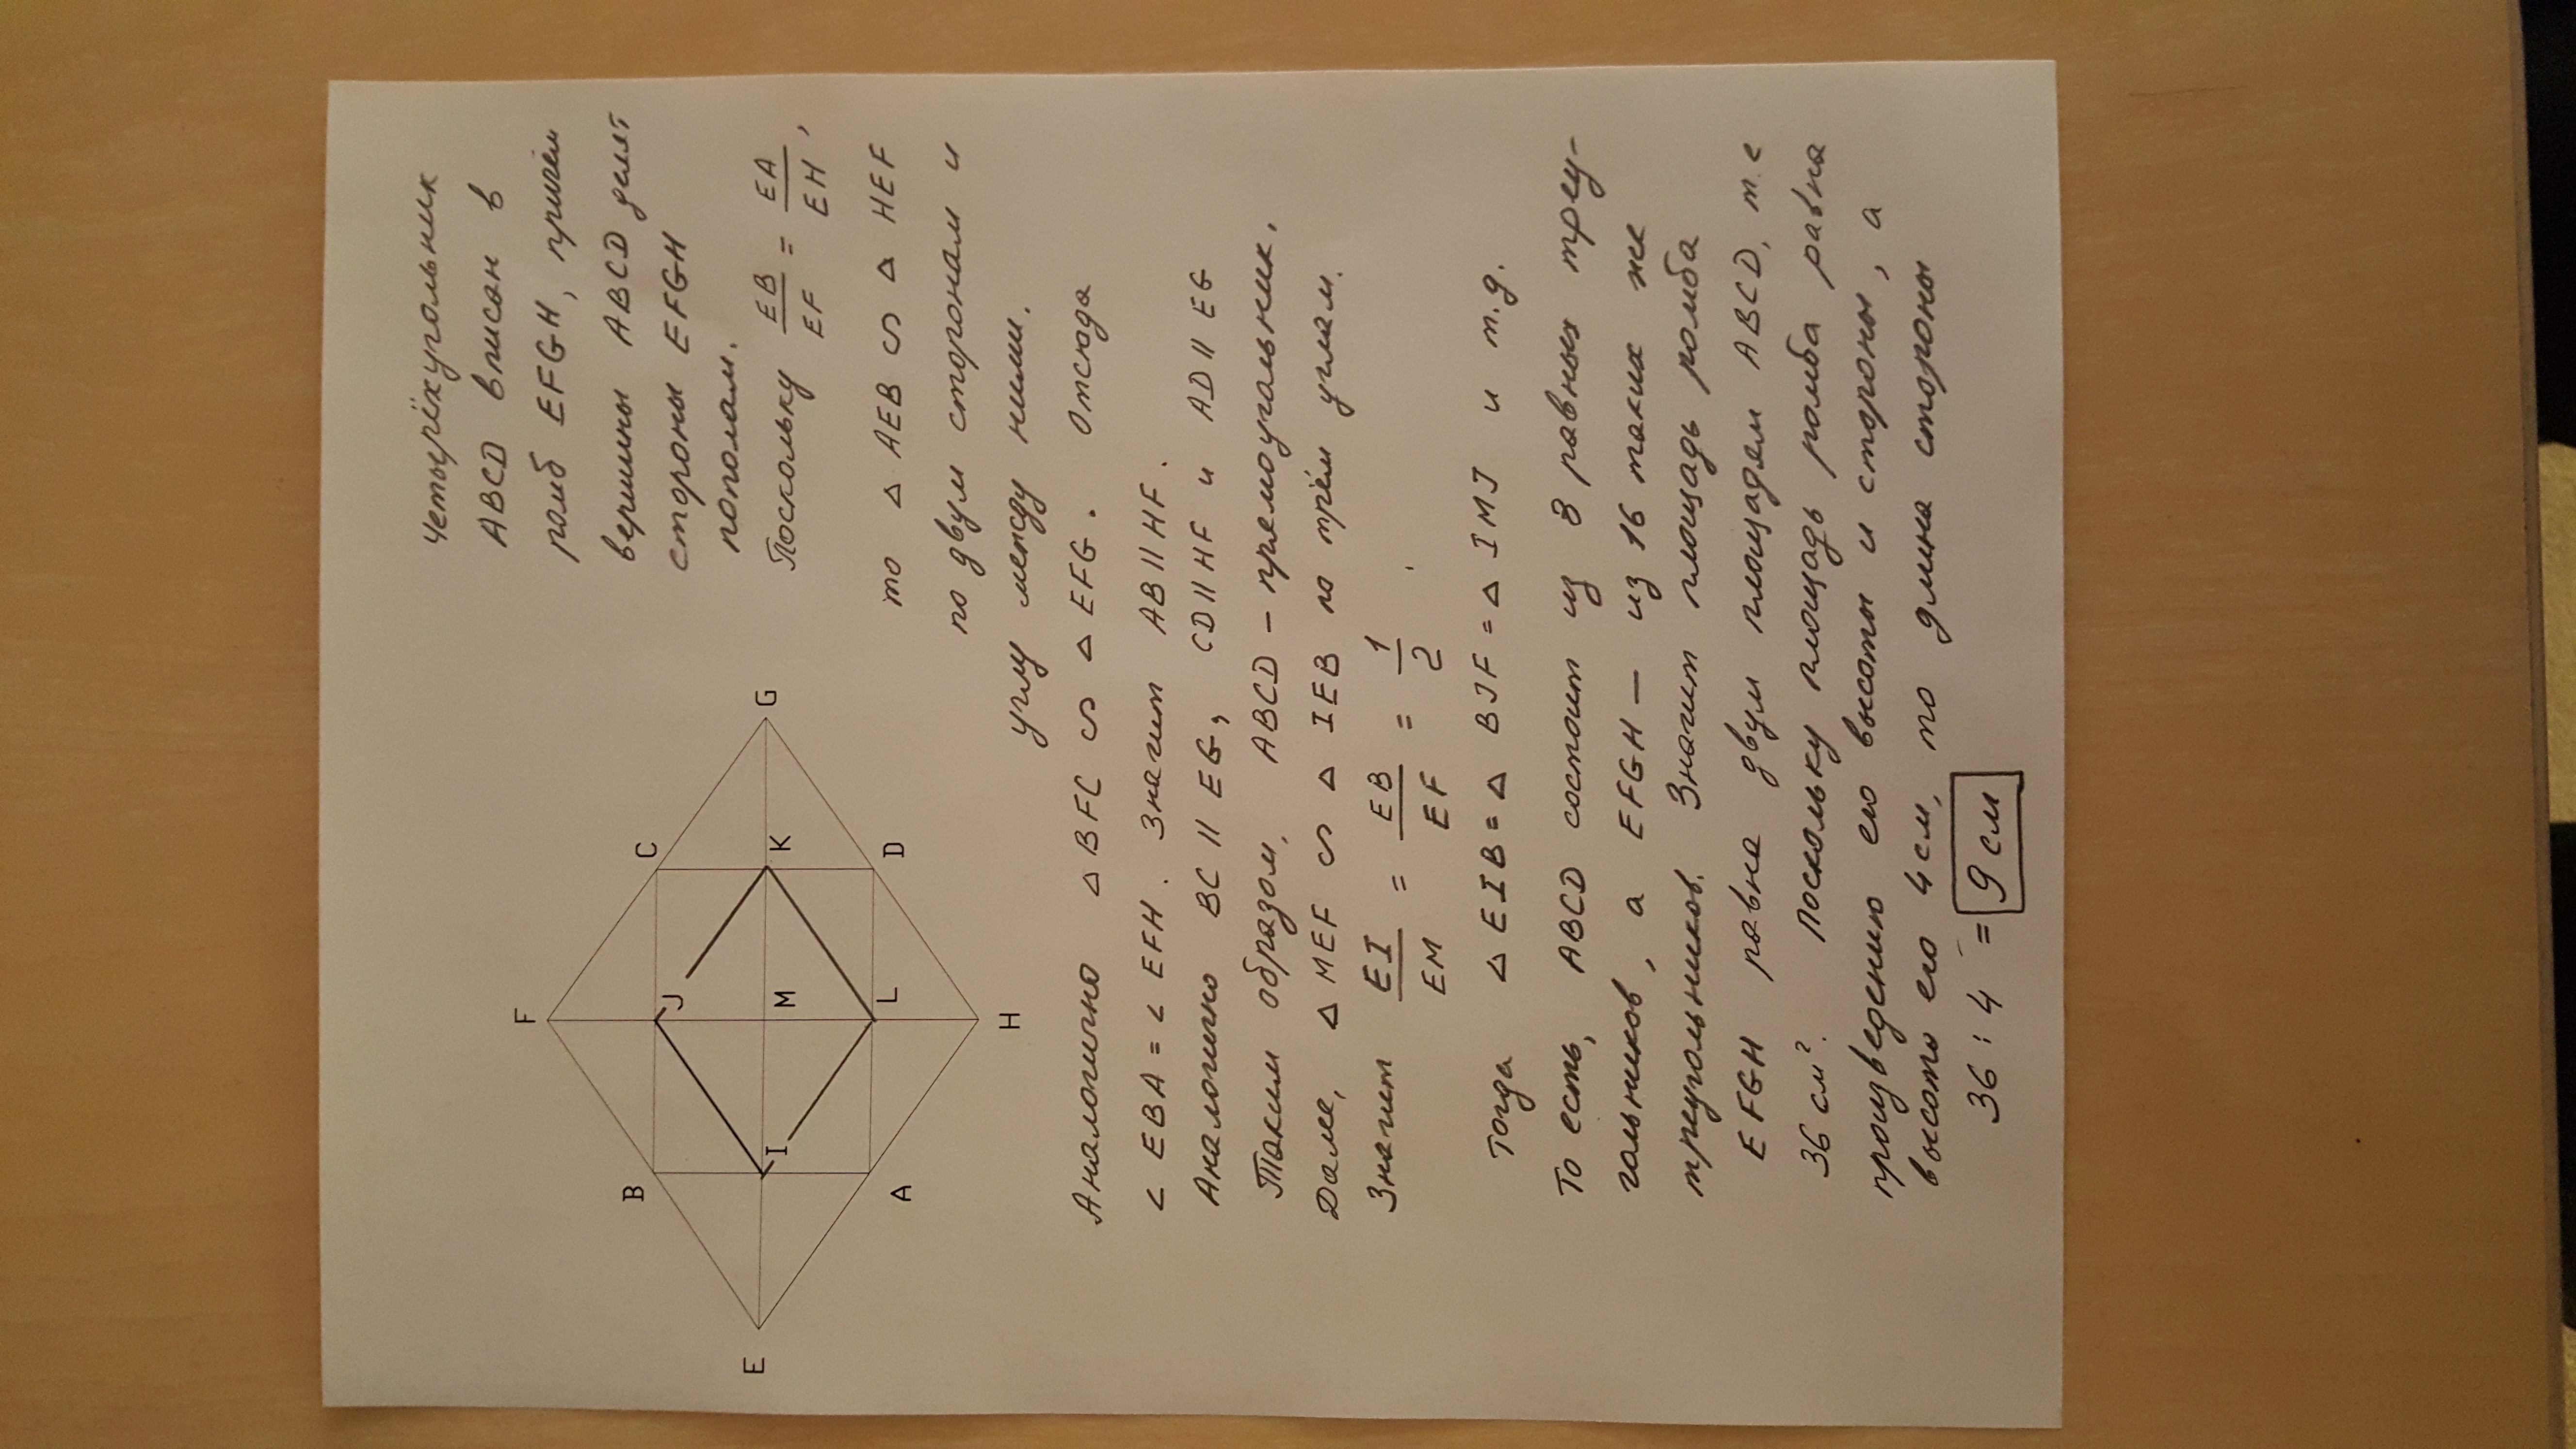 четырёхугольник
ABCD вписан в
ромб EFGH, причём
вершины ABCD делят
стороны EFGH
пополам.
Поскольку EB/EF = EA/EH,
то △ AEB ∽ △ HEF
по двум сторонам и
углу между ними.
Аналогично △ BFC ∽ △ EFG. Отсюда
∠ EBA = ∠ EFH. Значит AB || HF.
Аналогично BC || EG, CD || HF и AD || EG
Таким образом, ABCD – прямоугольник.
Далее, △ MEF ∽ △ IEB по трём углам.
Значит EI/EM = EB/EF = 1/2
Тогда △ EIB = △ BJF = △ IMJ и т.д.
То есть, ABCD состоит из 8 равных треу-
гольников, а EFGH — из 16 таких же
треугольников. Значит площадь ромба
EFGH равна двум площадям ABCD, т.е
36 см². Поскольку площадь ромба равна
произведению его высоты и стороны, а
высота его 4 см, то длина стороны
36 : 4 = 9 см
F
B
C
J
E
I
M
K
G
A
L
D
H